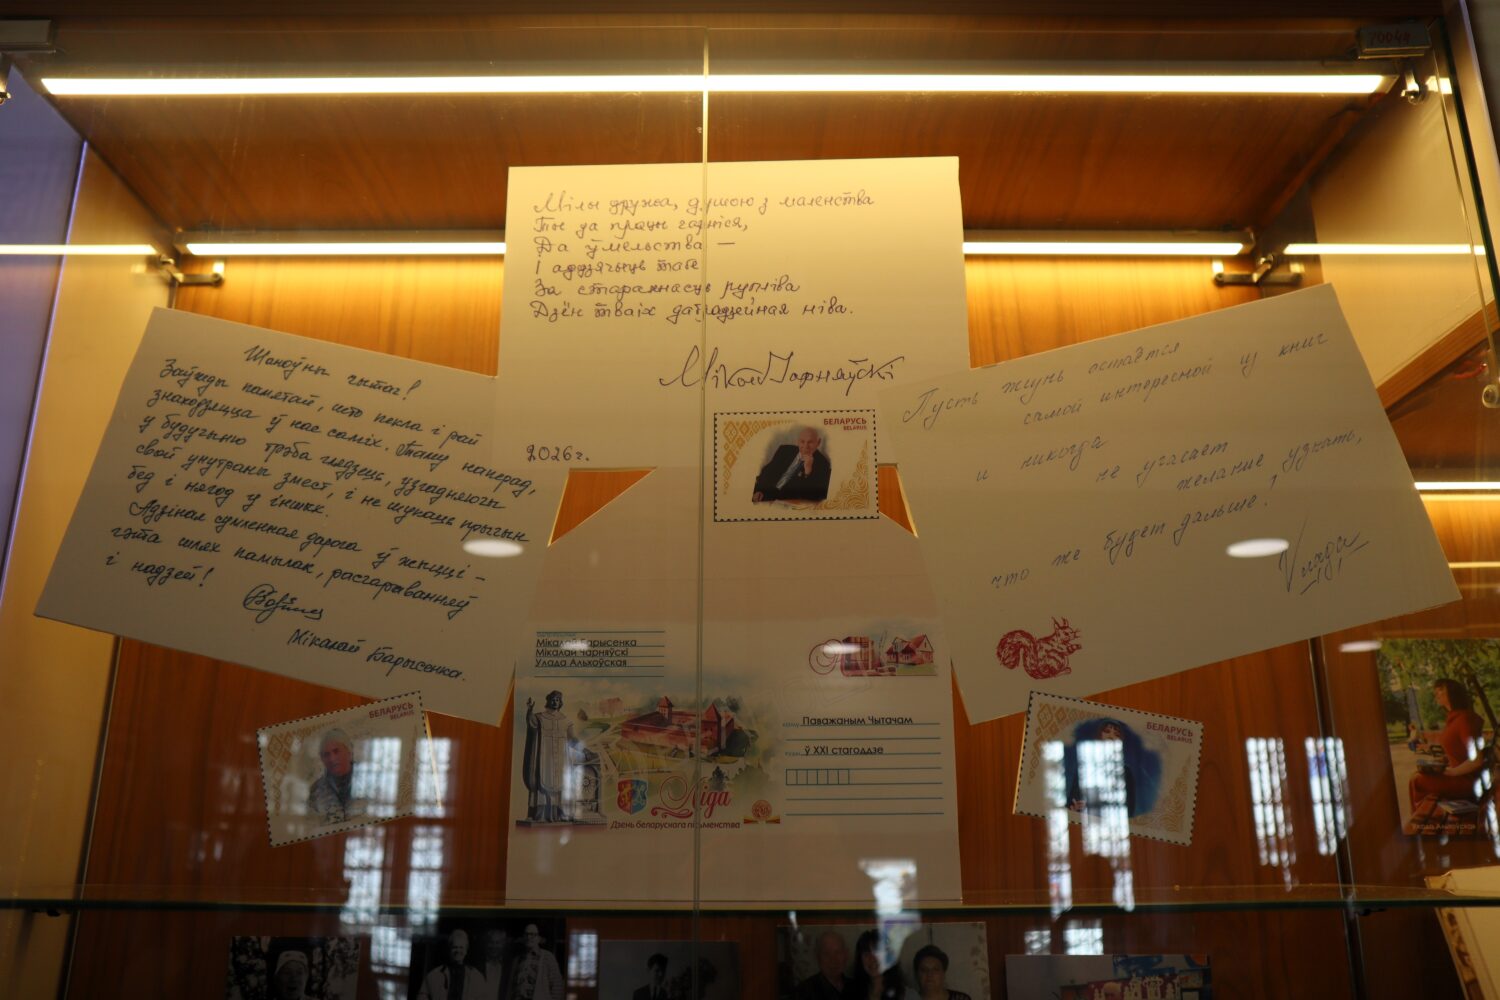 Мілы дружа, душою з маленства
Ты да працы гарніся,
Да ўмельства —
І аддзячыць табе
За стараннасць рупліва
Дзён тваіх дабрадзейная ніва.
Мікола Чарняўскі
2026 г.
БЕЛАРУСЬ
BELARUS
Шаноўны чытач!
Заўжды памятай, што пекла і рай
знаходзяцца ў нас саміх. Таму наперад,
у будучыню трэба глядзець, узгадняючы
свой унутраны змест, і не шукаць прычын
бед і нягод у іншых.
Адзіная сумленная дарога ў жыцці –
гэта шлях памылак, расчараванняў
і надзей!
Мікалай Барысенка.
БЕЛАРУСЬ
BELARUS
Пусть жизнь остаётся
самой интересной из книг
и никогда
не угасает
желание узнать,
что же будет дальше!
Улада
БЕЛАРУСЬ
BELARUS
Мікалай Барысенка
Мікалай Чарняўскі
Улада Альхоўская
Паважаным Чытачам
ў XXI стагоддзе
Ліда
Дзень беларускага пісьменства
Улада Альхоўская